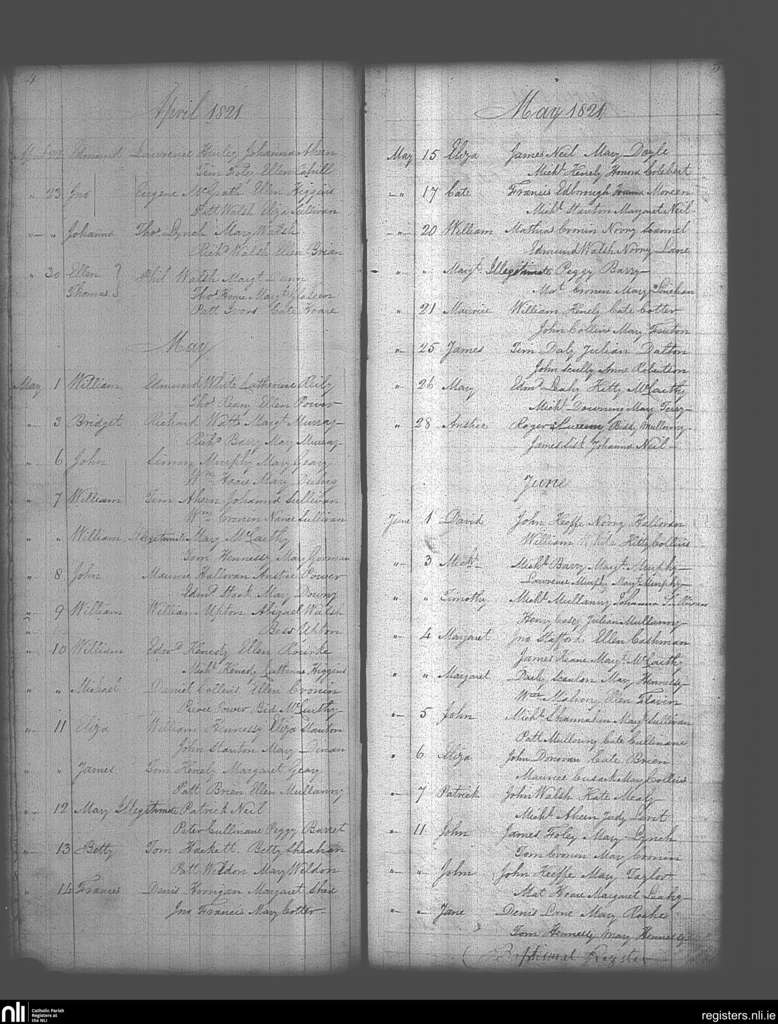 4
April 1821
Edmund Lawrence Hurley Johanna Ahern
Tim Foley Ellen Cahill
" 23 Jno Eugene McGrath Ellen Higgins
Patt Walsh Eliza Sullivan
" " Johanna Thos Lynch Mary Walsh
Richd Walsh Ellen Brian
" 30 Ellen } Phil Walsh Margt
Thomas } Thos Hoare Margt
Patt Cate Hoare
May
May 1 William Edmund White Catherine Reily
Thos Ellen Power
" 3 Bridget Richard Watts Margt Murray
Richd Barry Mary Murray
" 6 John Murphy Mary Geary
Wm Mary
" 7 William Tim Ahern Johanna Sullivan
Wm Cronen Nance Sullivan
" " William Illegitimate Mary McCarthy
Tom Hennessy Mary Gorman
" 8 John Maurice Halloran Anstice Power
Edmd Stack Mary
" 9 William William Upton Abigael Walsh
Bess Upton
" 10 William Edmd Kenedy Ellen Rourke
Michl Kenedy Catherine Higgins
" " Michael Daniel Collins Ellen Cronin
Pierce Power Bid McCarthy
" 11 Eliza William Hennessy Eliza Stanton
John Stanton Mary Dinan
" " James Tom Henely Margaret Geary
Patt Brien Ellen Mullowny
" 12 Mary Illegitimate Patrick Neil
Peter Cullinane Peggy Barret
" 13 Betty Tom Hackett Betty Sheahan
Patt Weldon Mary Weldon
" 14 Frances Denis Horrigan Margaret Shea
Jno Francis Mary Cotter
5
May 1821
May 15 Eliza James Neil Mary Doyle
Michl Henely Honora
" 17 Cate Francis Edbrough
Michl Stanton Margaret Neil
" 20 William Mathias Cronin Norry
Edmund Walsh Norry Lane
" " Margt Illegitimate Peggy Barry
Mat Cronen Mary Linehan
" 21 Maurice William Henely Cate Cotter
John Collins Mary
" 25 James Tim Daly Julian Dalton
John Scully Anne Robertson
" 26 Mary Edmd Leahy Kitty McCarthy
Michl Downing Mary
" 28 Anstice Roger Biddy Mullowny
James Johanna Neil
June
June 1 David John Keeffe Norry Halloran
William Kitty Collins
" 3 Michl Michl Barry Margt Murphy
Lawrence Murphy Margt Murphy
" " Timothy Michl Mullowny Johanna Sullivan
Henry Casey Julian Mullowny
" 4 Margaret Jno Stafford Ellen Cashman
James Keane Margt McCarthy
" " Margaret Scanlan Mary Hennessy
Wm Mahony Ellen Flavin
" 5 John Michl Shannahan Mary Sullivan
Patt Mullowny Cate Cullinane
" 6 Eliza John Donovan Cate Brien
Maurice Cusack Mary Collins
" 7 Patrick John Walsh Kate Mealy
Michl Aheen Judy
" 11 John James Foley Mary Lynch
Tom Cronin Mary Cronin
" " John John Keeffe Mary Taylor
Mat Hoare Margaret Leahy
" " Jane Denis Mary Roche
Tom Hennessy Mary Hennessy
Baptismal Register
nli
Catholic Parish
Registers at
the NLI
registers.nli.ie